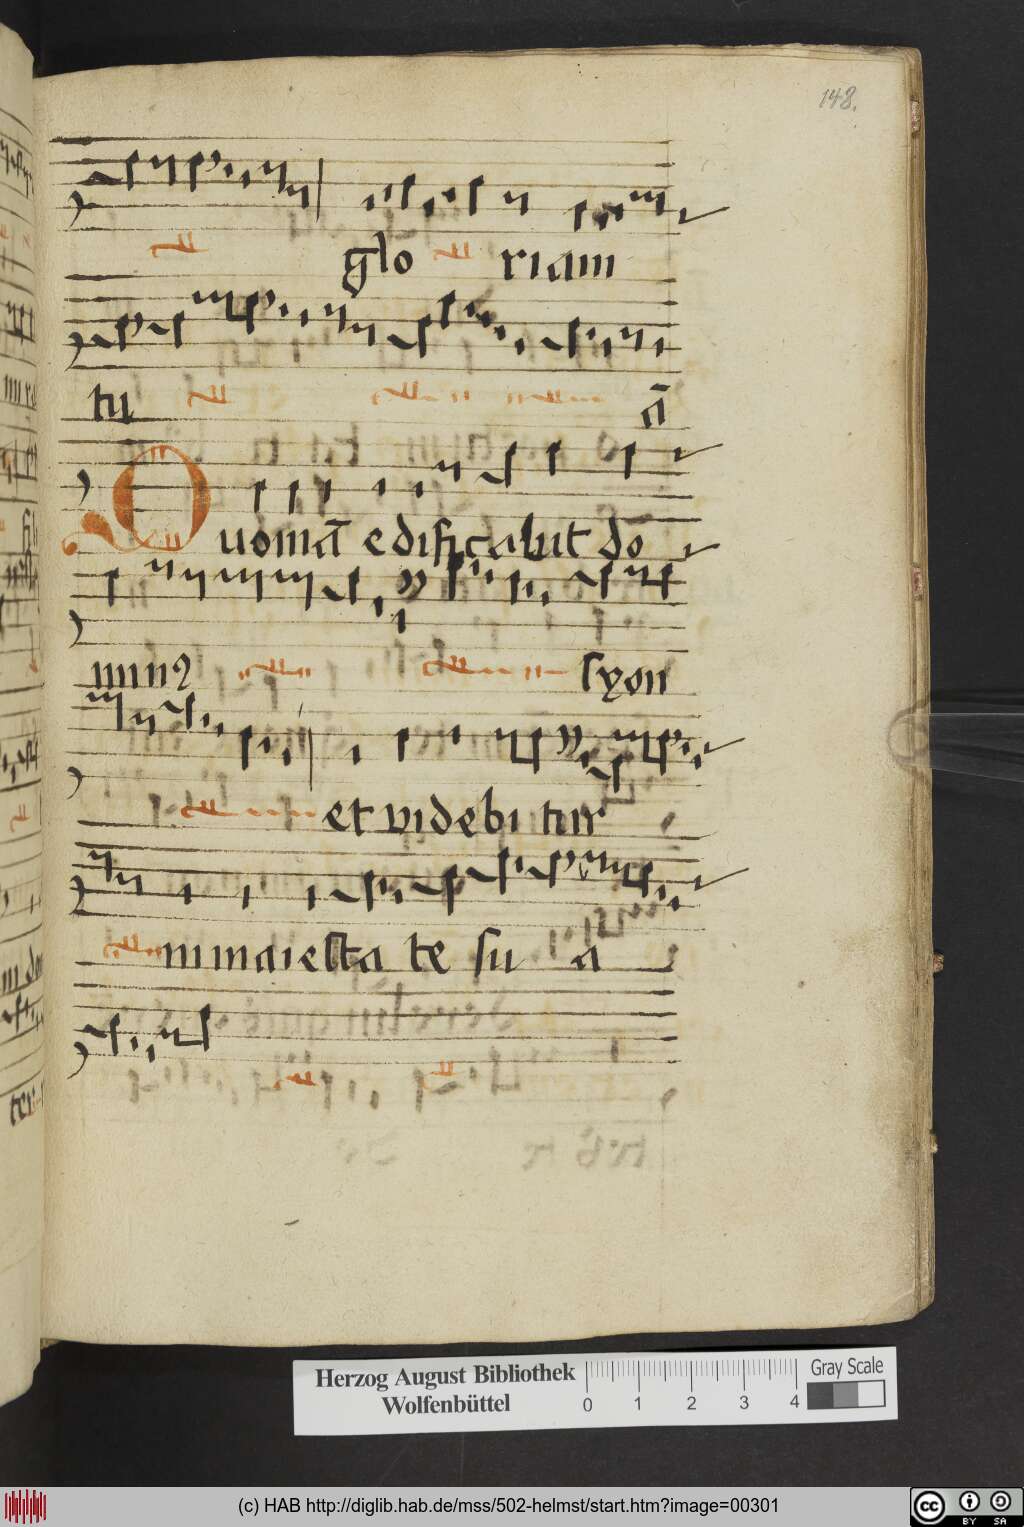 148.
glo riam
tu ā
Quoniā edificabit do
minꝰ syon
et videbi tur
in maiesta te su a
Herzog August Bibliothek
Wolfenbüttel
0 1 2 3 4
Gray Scale
(c) HAB http://diglib.hab.de/mss/502-helmst/start.htm?image=00301
cc BY SA